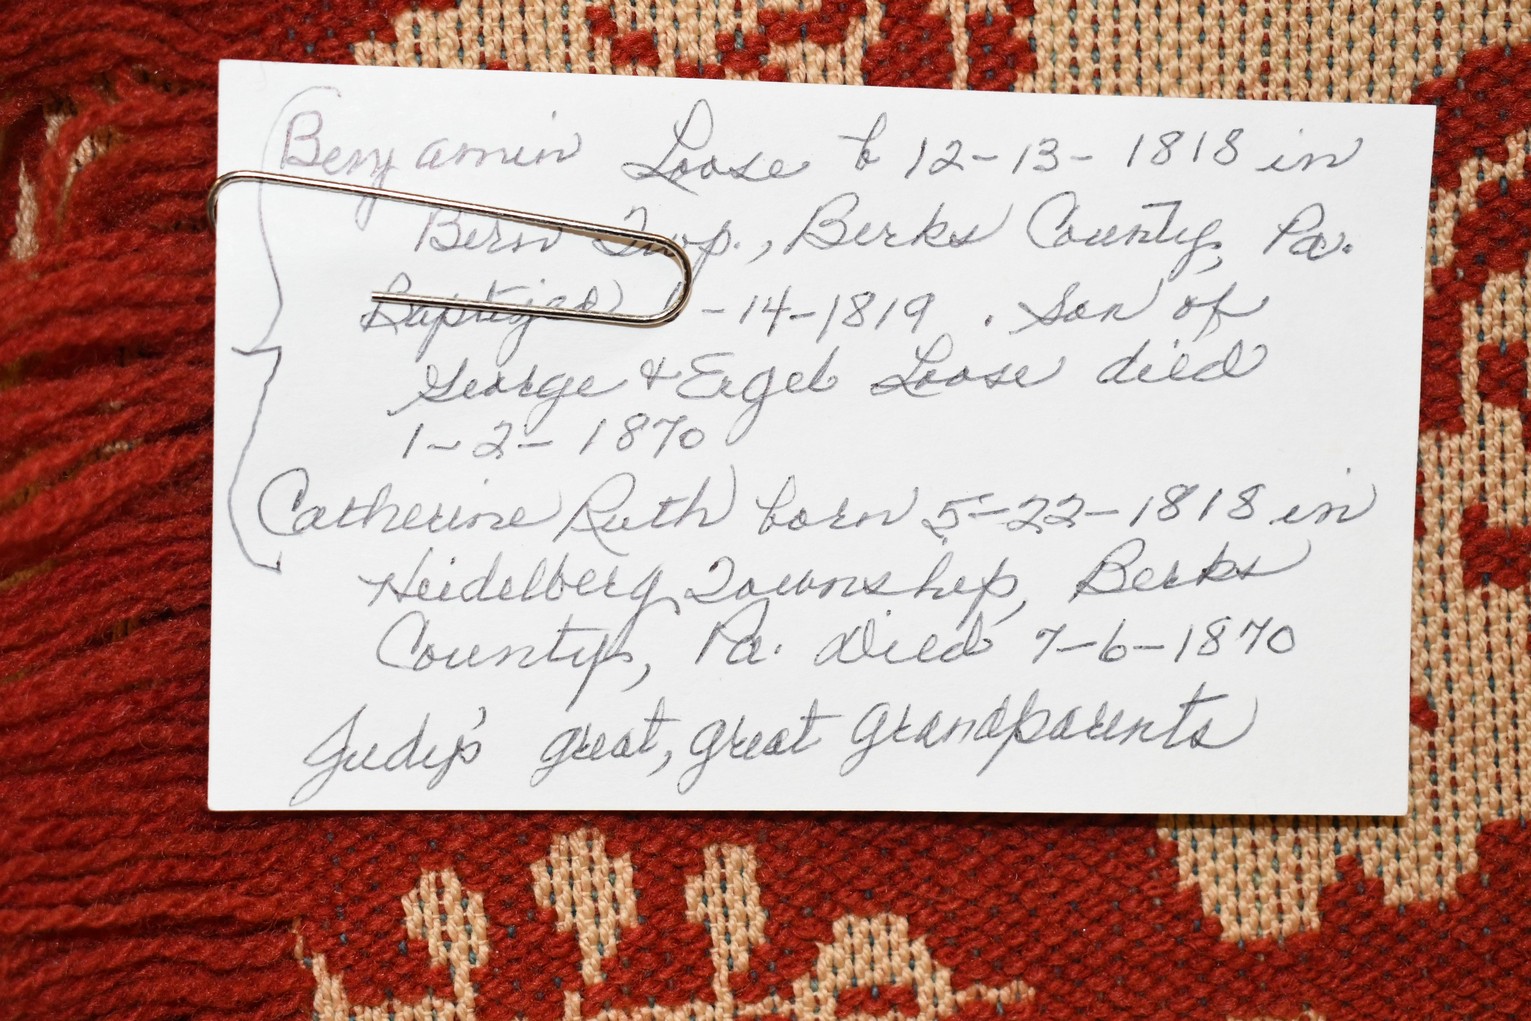 Benjamin Loose b 12-13-1818 in
Bern Twp., Berks County, Pa.
Baptized -14-1819. Son of
George & Loose died
1-2-1870
Catherine Ruth born 5-22-1818 in
Heidelberg Township, Berks
County, Pa. Died 7-6-1870
Judy's great, great grandparents